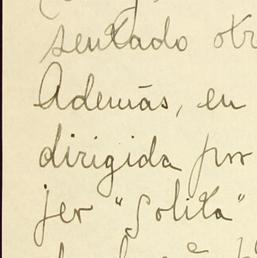 sentado otr
Además, en
dirigida por
jer "Solita"